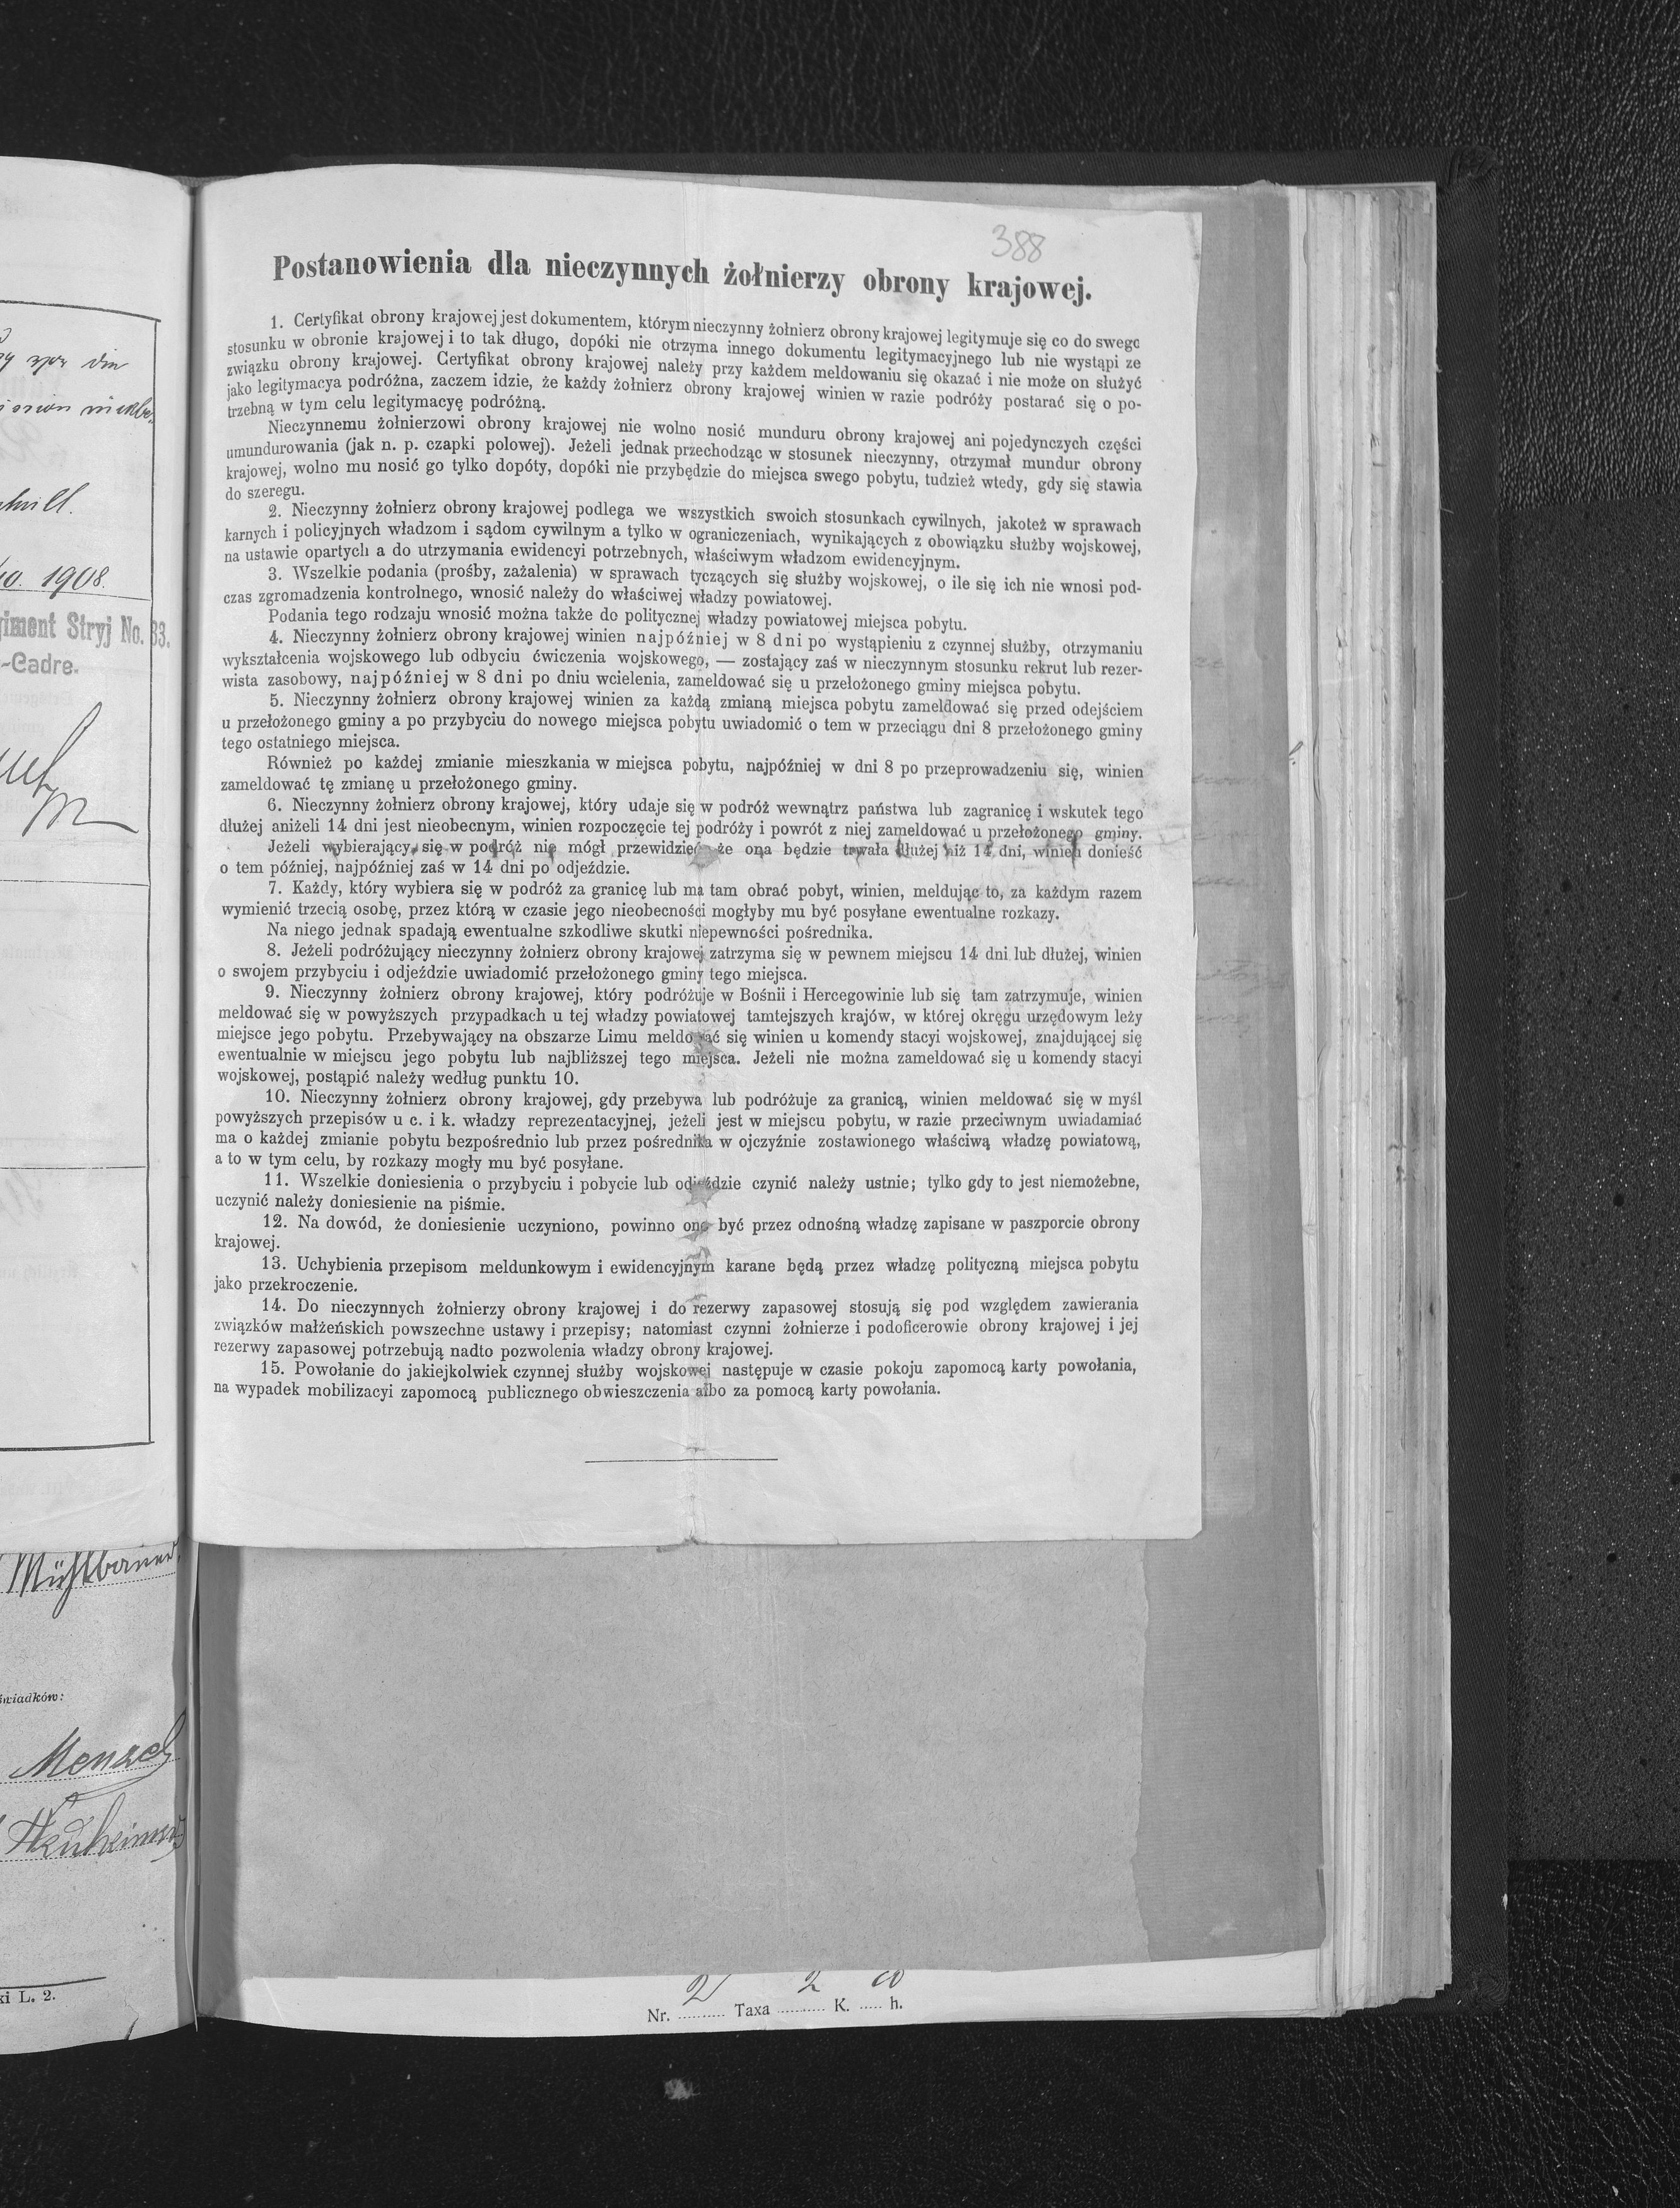 388
Postanowienia dla nieczynnych żołnierzy obrony krajowej.
1. Certyfikat obrony krajowej jest dokumentem, którym nieczynny żołnierz obrony krajowej legitymuje się co do swego
stosunku w obronie krajowej i to tak długo, dopóki nie otrzyma innego dokumentu legitymacyjnego lub nie wystąpi ze
związku obrony krajowej. Certyfikat obrony krajowej należy przy każdem meldowaniu się okazać i nie może on służyć
jako legitymacya podróżna, zaczem idzie, że każdy żołnierz obrony krajowej winien w razie podróży postarać się o po-
trzebną w tym celu legitymacyę podróżną.
Nieczynnemu żołnierzowi obrony krajowej nie wolno nosić munduru obrony krajowej ani pojedynczych części
umundurowania (jak n. p. czapki polowej). Jeżeli jednak przechodząc w stosunek nieczynny, otrzymał mundur obrony
krajowej, wolno mu nosić go tylko dopóty, dopóki nie przybędzie do miejsca swego pobytu, tudzież wtedy, gdy się stawia
do szeregu.
2. Nieczynny żołnierz obrony krajowej podlega we wszystkich swoich stosunkach cywilnych, jakoteż w sprawach
karnych i policyjnych władzom i sądom cywilnym a tylko w ograniczeniach, wynikających z obowiązku służby wojskowej,
na ustawie opartych a do utrzymania ewidencyi potrzebnych, właściwym władzom ewidencyjnym.
3. Wszelkie podania (prośby, zażalenia) w sprawach tyczących się służby wojskowej, o ile się ich nie wnosi pod-
czas zgromadzenia kontrolnego, wnosić należy do właściwej władzy powiatowej.
Podania tego rodzaju wnosić można także do politycznej władzy powiatowej miejsca pobytu.
4. Nieczynny żołnierz obrony krajowej winien najpóźniej w 8 dni po wystąpieniu z czynnej służby, otrzymaniu
wykształcenia wojskowego lub odbyciu ćwiczenia wojskowego, — zostający zaś w nieczynnym stosunku rekrut lub rezer-
wista zasobowy, najpóźniej w 8 dni po dniu wcielenia, zameldować się u przełożonego gminy miejsca pobytu.
5. Nieczynny żołnierz obrony krajowej winien za każdą zmianą miejsca pobytu zameldować się przed odejściem
u przełożonego gminy a po przybyciu do nowego miejsca pobytu uwiadomić o tem w przeciągu dni 8 przełożonego gminy
tego ostatniego miejsca.
Również po każdej zmianie mieszkania w miejsca pobytu, najpóźniej w dni 8 po przeprowadzeniu się, winien
zameldować tę zmianę u przełożonego gminy.
6. Nieczynny żołnierz obrony krajowej, który udaje się w podróż wewnątrz państwa lub zagranicę i wskutek tego
dłużej aniżeli 14 dni jest nieobecnym, winien rozpoczęcie tej podróży i powrót z niej zameldować u przełożonego gminy.
Jeżeli wybierający się w podróż nie mógł przewidzieć że ona będzie trwała dłużej niż 14 dni, winien donieść
o tem później, najpóźniej zaś w 14 dni po odjeździe.
7. Każdy, który wybiera się w podróż za granicę lub ma tam obrać pobyt, winien, meldując to, za każdym razem
wymienić trzecią osobę, przez którą w czasie jego nieobecności mogłyby mu być posyłane ewentualne rozkazy.
Na niego jednak spadają ewentualne szkodliwe skutki niepewności pośrednika.
8. Jeżeli podróżujący nieczynny żołnierz obrony krajowej zatrzyma się w pewnem miejscu 14 dni lub dłużej, winien
o swojem przybyciu i odjeździe uwiadomić przełożonego gminy tego miejsca.
9. Nieczynny żołnierz obrony krajowej, który podróżuje w Bośnii i Hercegowinie lub się tam zatrzymuje, winien
meldować się w powyższych przypadkach u tej władzy powiatowej tamtejszych krajów, w której okręgu urzędowym leży
miejsce jego pobytu. Przebywający na obszarze Limu meldować się winien u komendy stacyi wojskowej, znajdującej się
ewentualnie w miejscu jego pobytu lub najbliższej tego miejsca. Jeżeli nie można zameldować się u komendy stacyi
wojskowej, postąpić należy według punktu 10.
10. Nieczynny żołnierz obrony krajowej, gdy przebywa lub podróżuje za granicą, winien meldować się w myśl
powyższych przepisów u c. i k. władzy reprezentacyjnej, jeżeli jest w miejscu pobytu, w razie przeciwnym uwiadamiać
ma o każdej zmianie pobytu bezpośrednio lub przez pośrednika w ojczyźnie zostawionego właściwą władzę powiatową,
a to w tym celu, by rozkazy mogły mu być posyłane.
11. Wszelkie doniesienia o przybyciu i pobycie lub odjeździe czynić należy ustnie; tylko gdy to jest niemożebne,
uczynić należy doniesienie na piśmie.
12. Na dowód, że doniesienie uczyniono, powinno ono być przez odnośną władzę zapisane w paszporcie obrony
krajowej.
13. Uchybienia przepisom meldunkowym i ewidencyjnym karane będą przez władzę polityczną miejsca pobytu
jako przekroczenie.
14. Do nieczynnych żołnierzy obrony krajowej i do rezerwy zapasowej stosują się pod względem zawierania
związków małżeńskich powszechne ustawy i przepisy; natomiast czynni żołnierze i podoficerowie obrony krajowej i jej
rezerwy zapasowej potrzebują nadto pozwolenia władzy obrony krajowej.
15. Powołanie do jakiejkolwiek czynnej służby wojskowej następuje w czasie pokoju zapomocą karty powołania,
na wypadek mobilizacyi zapomocą publicznego obwieszczenia albo za pomocą karty powołania.
1908.
giment Stryj No. 33.
-Cadre.
Mühlbauer
świadków:
ki L. 2.
Nr. 2 Taxa 2 K. h.